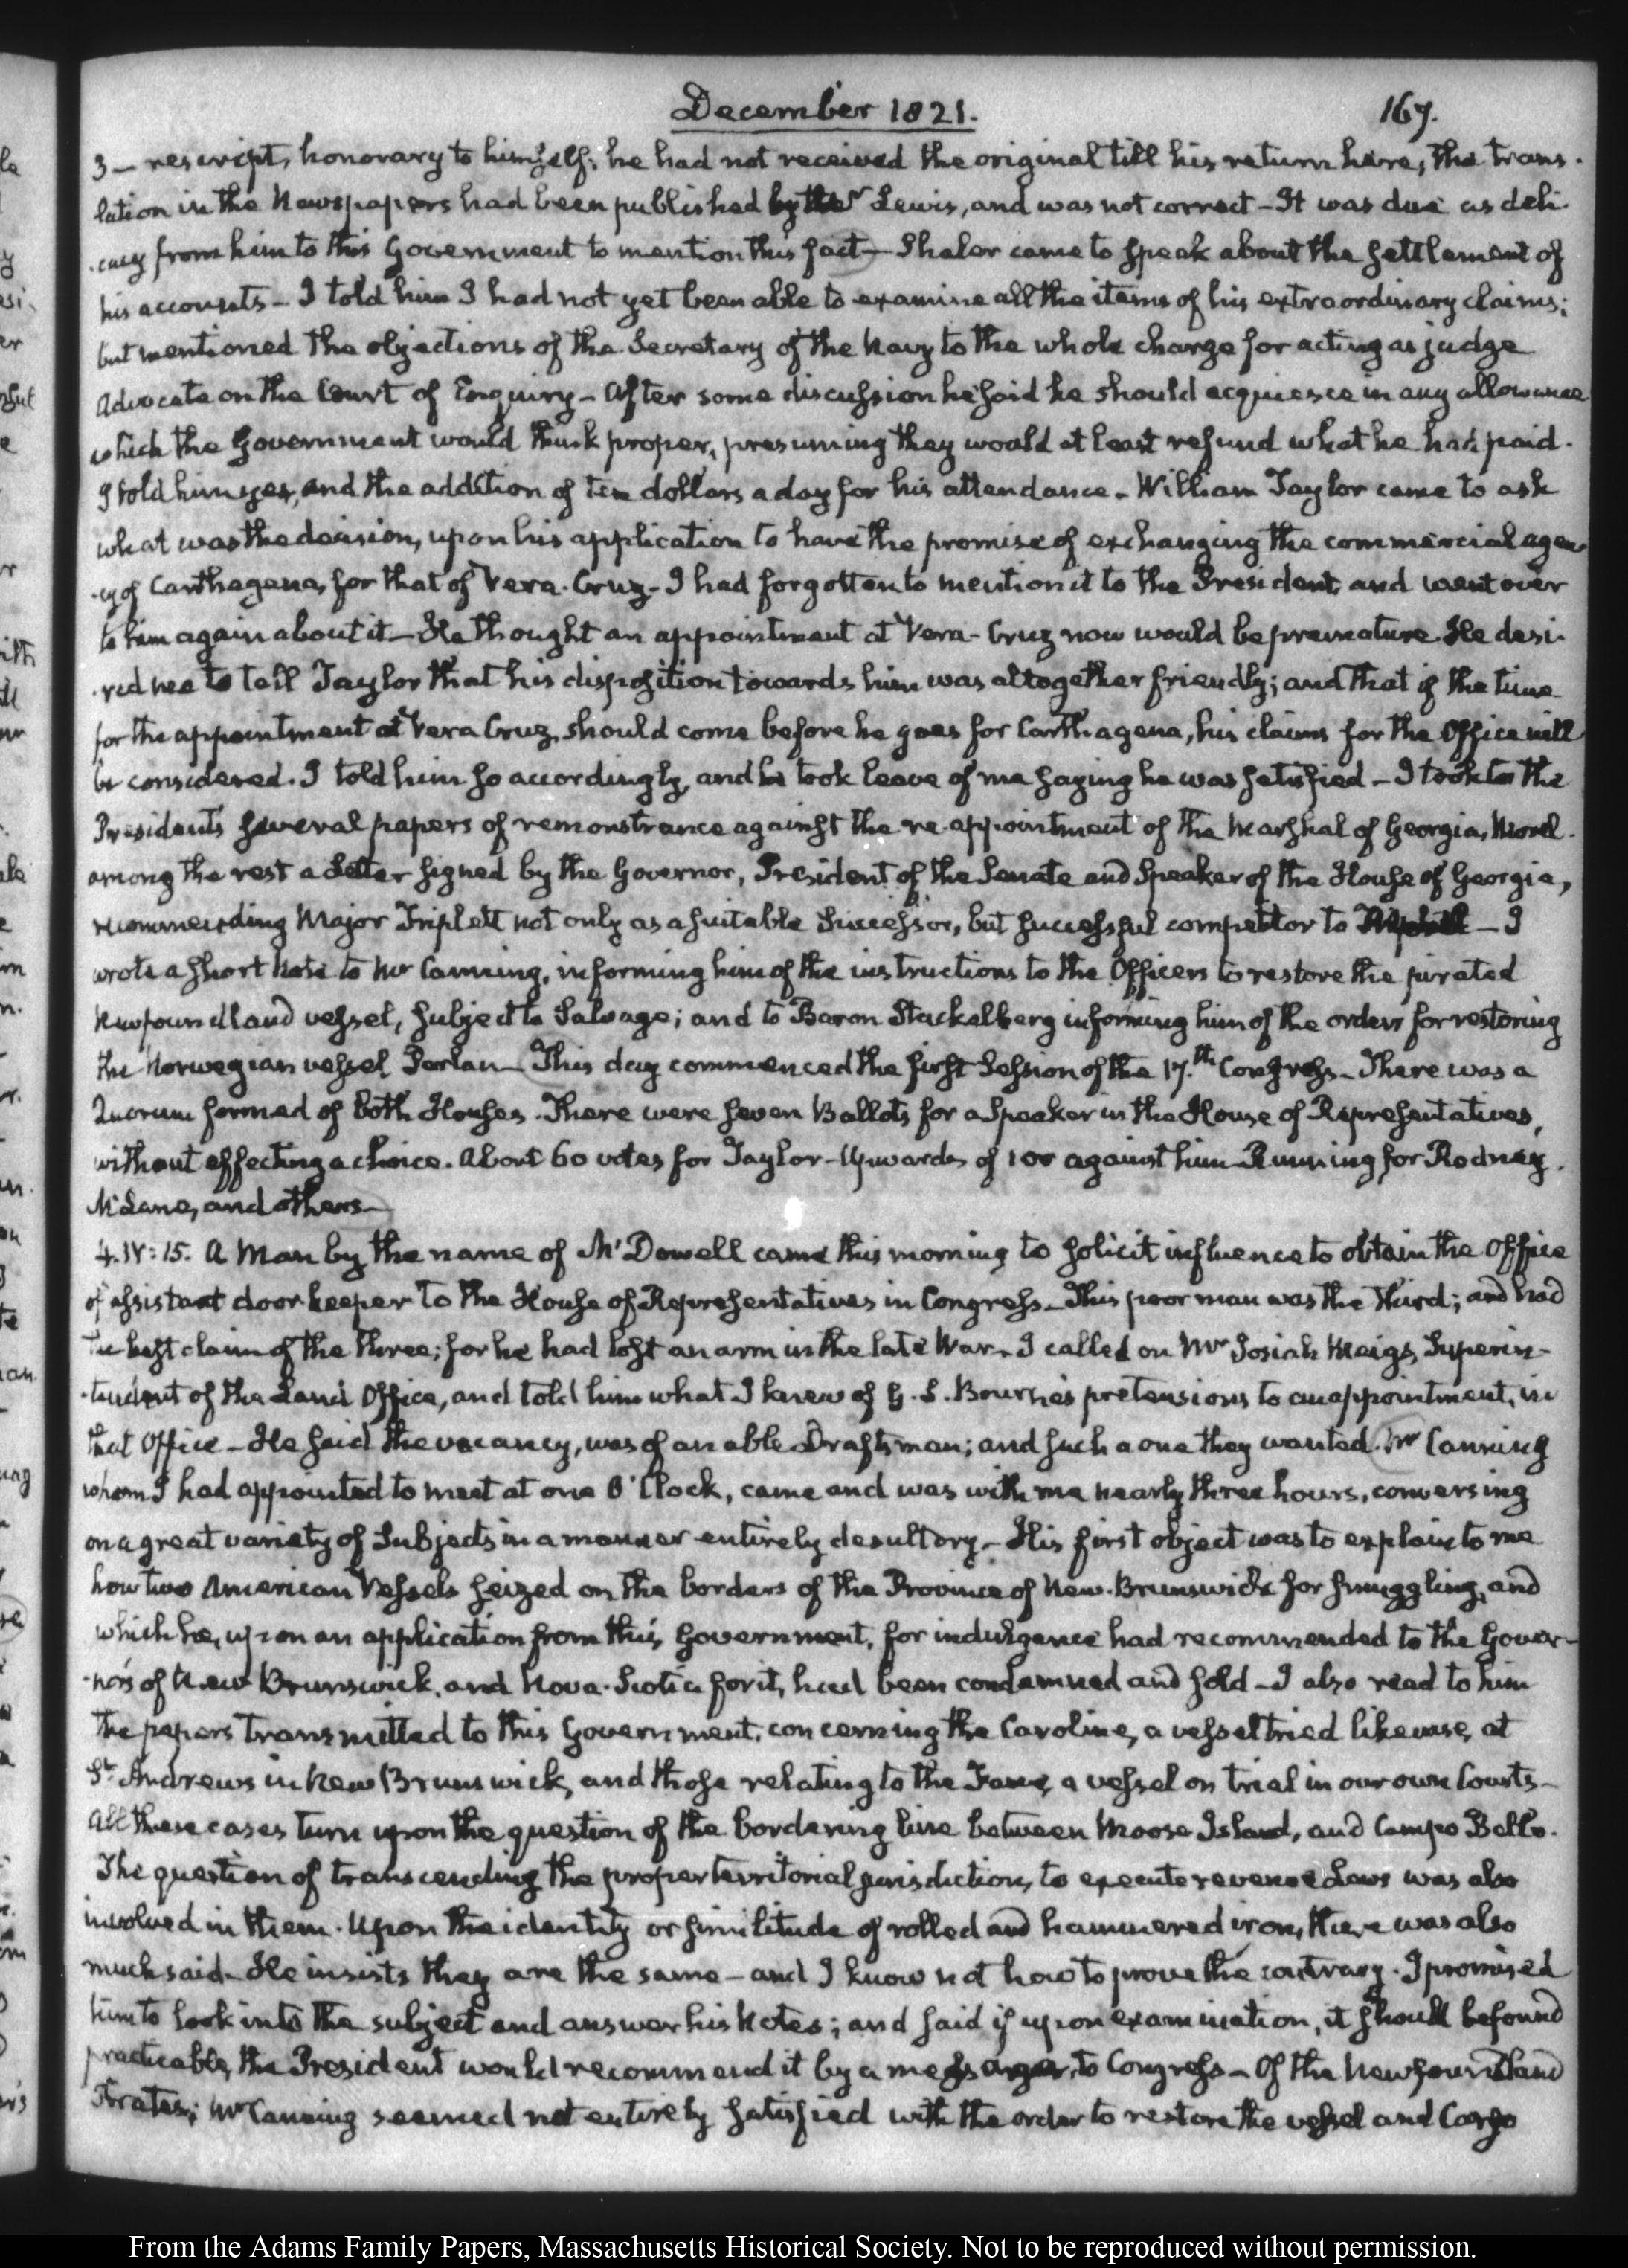 December 1821.
167.
3 — rescript, honorary to himself; he had not received the original till his return here, the trans-
lation in the Newspapers had been published by Lewis, and was not correct - It was due as deli-
-cacy from him to this Government to mention this fact - Shaler came to speak about the settlement of
his accounts - I told him I had not yet been able to examine all the items of his extraordinary claims;
but mentioned the objections of the Secretary of the Navy to the whole charge for acting as judge
Advocate on the Court of Enquiry - After some discussion he said he should acquiesce in any allowance
which the Government would think proper, presuming they would at least refund what he had paid.
I told him yes, and the addition of ten dollars a day for his attendance - William Taylor came to ask
what was the decision, upon his application to have the promise of exchanging the commercial agen-
-cy of Carthagena, for that of Vera-Cruz - I had forgotten to mention it to the President, and went over
to him again about it - He thought an appointment at Vera-Cruz now would be premature. He desi-
-red me to tell Taylor that his disposition towards him was altogether friendly; and that if the time
for the appointment at Vera Cruz, should come before he goes for Carthagena, his claims for the Office will
be considered. I told him so accordingly, and he took leave of me saying he was satisfied - I took to the
President's several papers of remonstrance against the re-appointment of the Marshal of Georgia, Morel.
among the rest a Letter signed by the Governor, President of the Senate and Speaker of the House of Georgia,
recommending Major Triplett not only as a suitable Successor, but successful competitor to — I
wrote a short Note to Mr Canning, informing him of the instructions to the Officers to restore the pirated
Newfoundland vessel, subject to Salvage; and to Baron Stackelberg informing him of the orders for restoring
the Norwegian vessel Perlan - This day commenced the first Session of the 17.th Congress - There was a
Quorum formed of both Houses. There were seven Ballots for a Speaker in the House of Representatives,
without effecting a choice. About 60 votes for Taylor - Upwards of 100 against him - Running for Rodney.
McLane, and others -
4. IV: 15. A Man by the name of McDowell came this morning to solicit influence to obtain the Office
of assistant door keeper to the House of Representatives in Congress - This poor man was the third; and had
the best claim of the three; for he had lost an arm in the late War - I called on Mr Josiah Meigs, Superin-
-tendent of the Land Office, and told him what I knew of G. S. Bourne's pretensions to an appointment, in
that Office - He said the vacancy, was of an able Draftsman; and such a one they wanted. Mr Canning
whom I had appointed to meet at one O'Clock, came and was with me nearly three hours, conversing
on a great variety of Subjects in a manner entirely desultory - His first object was to explain to me
how two American Vessels seized on the borders of the Province of New-Brunswick for smuggling, and
which he, upon an application from this Government, for indulgence had recommended to the Gover-
-nors of New Brunswick, and Nova-Scotia for it, had been condemned and sold - I also read to him
the papers transmitted to this Government, concerning the Caroline, a vessel tried likewise, at
St Andrews in New Brunswick, and those relating to the a vessel on trial in our own Courts -
All these cases turn upon the question of the bordering line between Moose Island, and Campo Bello.
The question of transcending the proper territorial jurisdiction, to execute revenue Laws was also
involved in them. Upon the identity or similitude of rolled and hammered iron, there was also
much said - He insists they are the same - and I know not how to prove the contrary. I promised
him to look into the subject and answer his Notes; and said if upon examination, it should be found
practicable, the President would recommend it by a message, to Congress - Of the Newfoundland
Pirates; Mr Canning seemed not entirely satisfied with the order to restore the vessel and Cargo
From the Adams Family Papers, Massachusetts Historical Society. Not to be reproduced without permission.